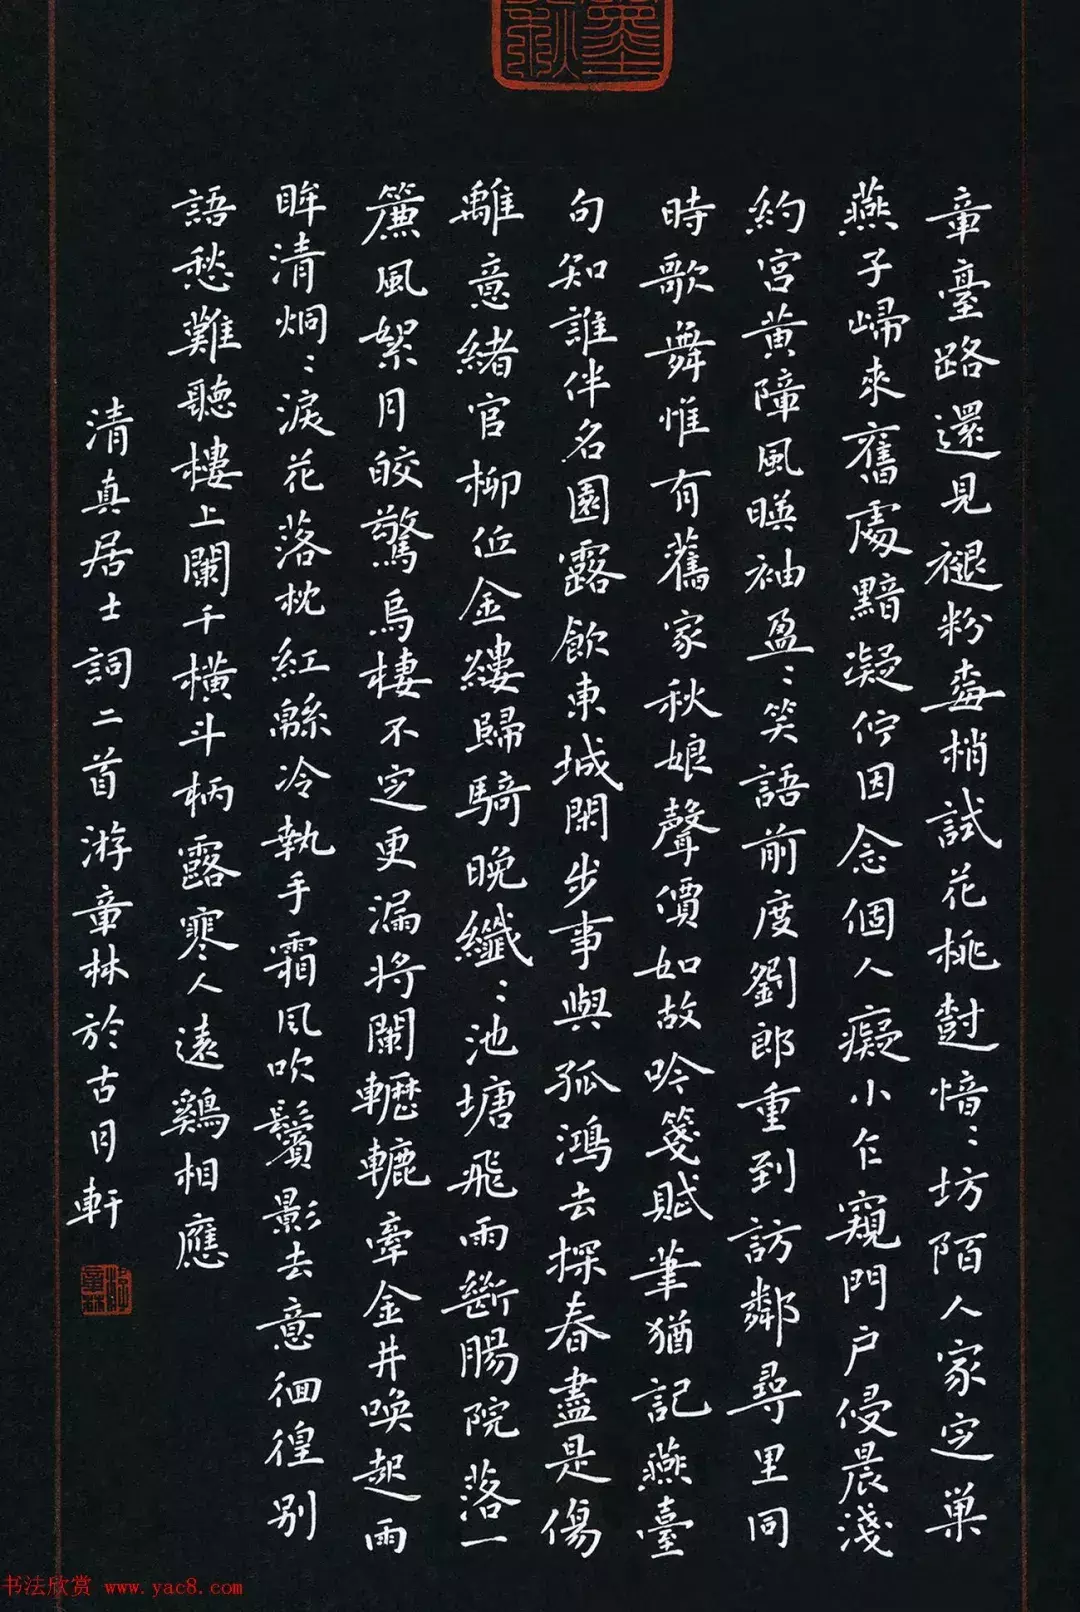 章臺路還見褪粉梅梢試花桃樹愔〻坊陌人家定巢
燕子歸來舊處黯凝佇因念個人癡小乍窺門戶侵晨淺
約宮黃障風暎袖盈〻笑語前度劉郎重到訪鄰尋里同
時歌舞惟有舊家秋娘聲價如故吟箋賦筆猶記燕臺
句知誰伴名園露飲東城閑步事與孤鴻去探春盡是傷
離意緒官柳低金縷歸騎晚纖〻池塘飛雨斷腸院落一
簾風絮月皎驚烏棲不定更漏將闌轣轆牽金井喚起兩
眸清炯〻淚花落枕紅緜冷執手霜風吹鬢影去意徊徨別
語愁難聽樓上闌干橫斗柄露寒人遠鷄相應
清真居士詞二首游章林於古月軒
书法欣赏 www.yac8.com